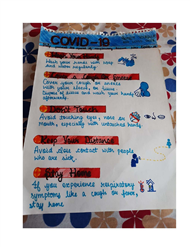 COVID-19
Wash your hands with soap
and water regularly
Cover your cough or sneeze
with your elbow, or tissue
Dispose of tissue and wash your hands
afterwards.
Don't Touch
Avoid touching eyes, nose or
mouth, especially with unwashed hands.
Keep Your Distance
Avoid close contact with people
who are sick.
Stay Home
If you experience respiratory
symptoms like a cough or fever,
stay home